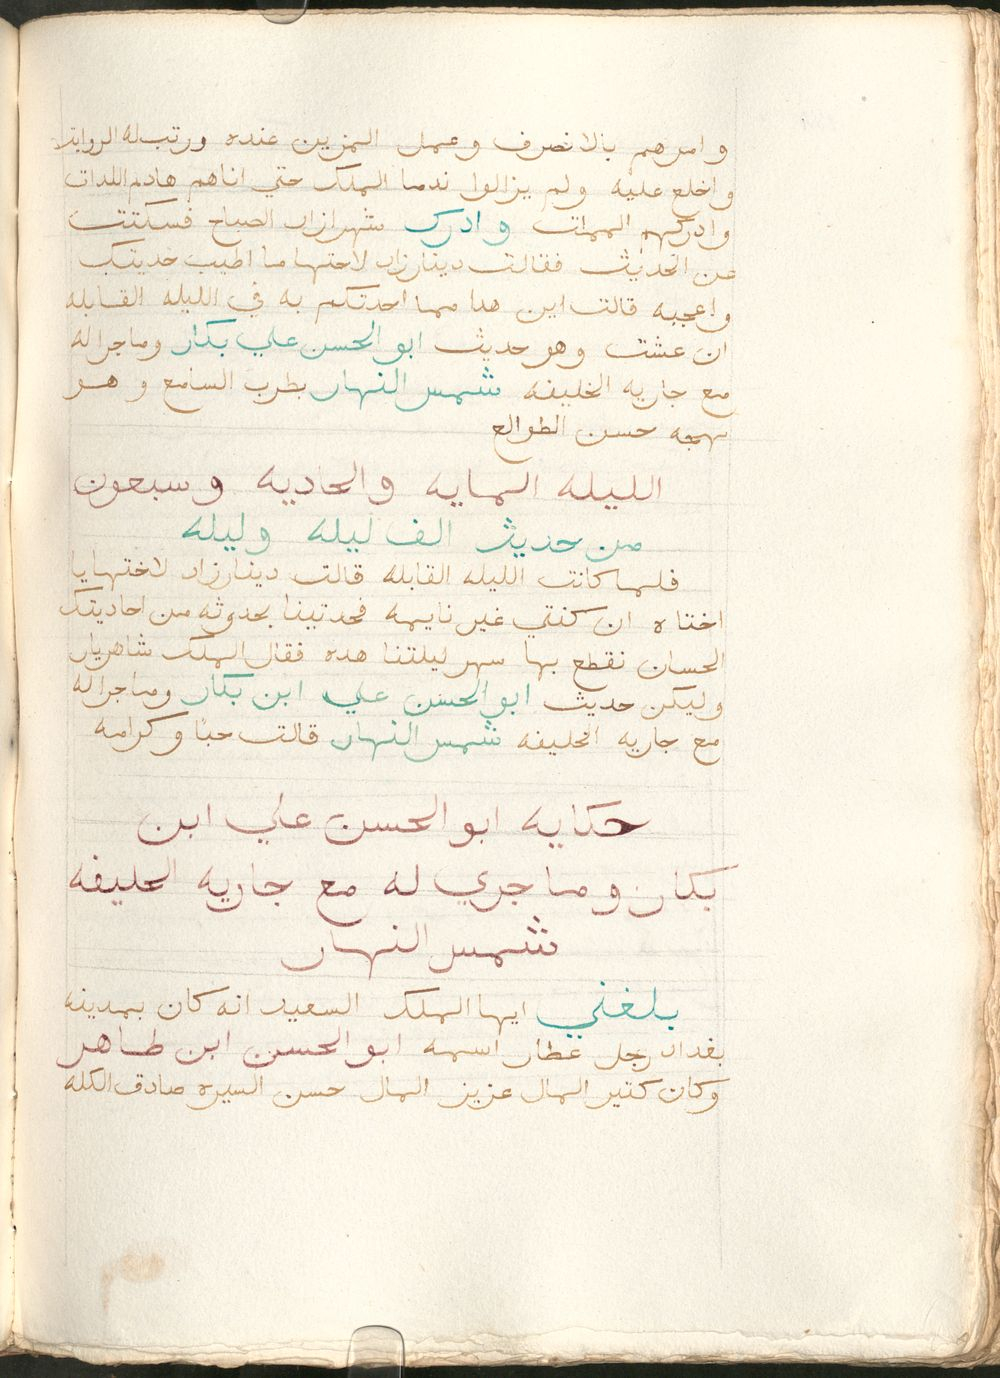 وامرهم بالانصرف وعمل المزين عنده ورتب له الرواتب
واخلع عليه ولم يزالوا ندما الملك حتي اتاهم هادم اللدات
وادركهم الممات وادرك شهرازاد الصباح فسكتت
عن الحديث فقالت دينارزاد لاختها ما اطيب حديتك
واعجبه قالت اين هدا مما احدتكم به في الليله القابله
ان عشت وهو حديث ابو الحسن علي بكار وما جرا له
مع جاريه الخليفه شمس النهار يطرب السامع و هو
بهجه حسن الطوالع
الليله المايه والحاديه وسبعون
من حديث الف ليله وليله
فلما كانت الليله القابله قالت دينارزاد لاختها يا
اختاه ان كنتي غير نايمه فحدتينا بحدوثه من احاديتك
الحسان نقطع بها سهر ليلتنا هده فقال الملك شاهريار
وليكن حديث ابو الحسن علي ابن بكار وما جرا له
مع جاريه الخليفه شمس النهار قالت حبا وكرامه
حكايه ابو الحسن علي ابن
بكار وما جري له مع جاريه الخليفه
شمس النهار
بلغني ايها الملك السعيد انه كان بمدينه
بغداد رجل عطار اسمه ابو الحسن ابن طاهر
وكان كتير المال عزيز المال حسن السيره صادق الكله